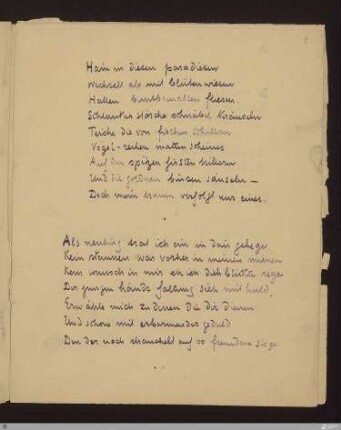 Hain in diesen paradiesen
Wechselt ab mit blütenwiesen
Hallen buntbemalten fliesen.
Schlanker störche schnäbel kräuseln
Teiche die von fischen schillern
Vogel-reihen matten scheines
Auf den spitzen firsten trillern
Und die goldnen binsen säuseln –
Doch mein traum verfolgt nur eines.
Als neuling trat ich ein in dein gehege
Kein staunen war vorher in meinen mienen
Kein wunsch in mir eh ich dich blickte rege
Der jungen hände faltung sieh mit huld
Erwähle mich zu denen die dir dienen
Und schone mit erbarmender geduld
Den der noch strauchelt auf so fremdem stege